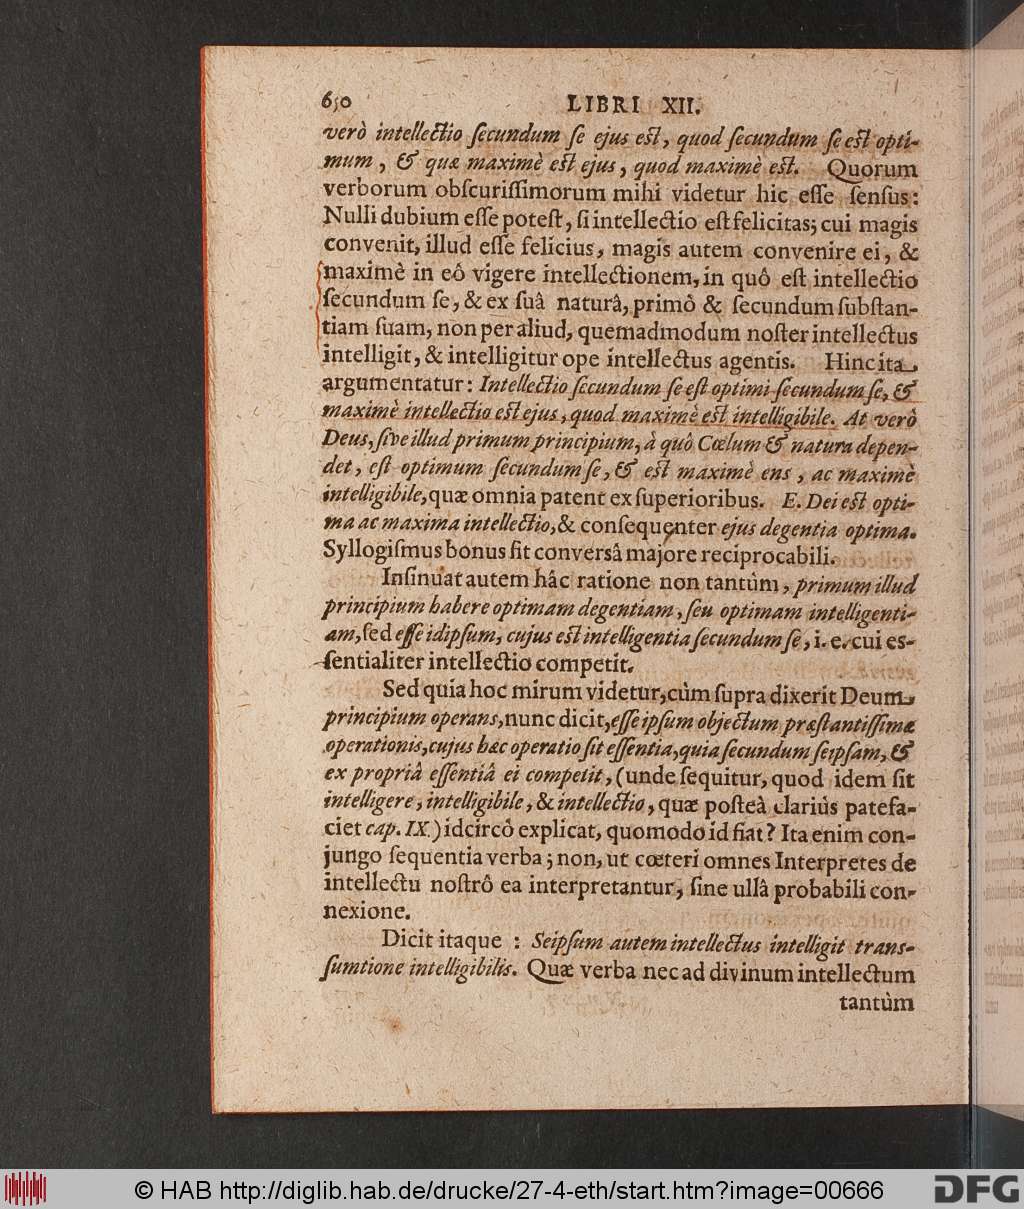 650
LIBRI XII.
verò intellectio ſecundum ſe ejus eſt, quod ſecundum ſe eſt opti-
mum, & quæ maximè eſt ejus, quod maximè eſt. Quorum
verborum obſcuriſſimorum mihi videtur hic eſſe ſenſus:
Nulli dubium eſſe poteſt, ſi intellectio eſt felicitas; cui magis
convenit, illud eſſe felicius, magis autem convenire ei, &
maximè in eô vigere intellectionem, in quô eſt intellectio
ſecundum ſe, & ex ſuâ naturâ, primô & ſecundum ſubſtan-
tiam ſuam, non per aliud, quemadmodum noſter intellectus
intelligit, & intelligitur ope intellectus agentis. Hinc ita
argumentatur: Intellectio ſecundum ſe eſt optimi ſecundum ſe, &
maximè intellectio eſt ejus, quod maximè eſt intelligibile. At verò
Deus, ſive illud primum principium, à quô Cœlum & natura depen-
det, eſt optimum ſecundum ſe, & eſt maximè ens, ac maximè
intelligibile, quæ omnia patent ex ſuperioribus. E. Dei eſt opti-
ma ac maxima intellectio, & conſequenter ejus degentia optima.
Syllogiſmus bonus ſit conversâ majore reciprocabili.
Inſinuat autem hâc ratione non tantùm, primum illud
principium habere optimam degentiam, ſeu optimam intelligenti-
am, ſed eſſe idipſum, cujus eſt intelligentia ſecundum ſe, i. e. cui eſ-
ſentialiter intellectio competit.
Sed quia hoc mirum videtur, cùm ſupra dixerit Deum
principium operans, nunc dicit, eſſe ipſum objectum præſtantiſſimæ
operationis, cujus hæc operatio ſit eſſentia, quia ſecundum ſeipſam, &
ex propriâ eſſentiâ ei competit, (unde ſequitur, quod idem ſit
intelligere, intelligibile, & intellectio, quæ poſteà clariùs patefa-
ciet cap. IX.) idcircô explicat, quomodo id fiat? Ita enim con-
jungo ſequentia verba; non, ut cœteri omnes Interpretes de
intellectu noſtrô ea interpretantur, ſine ullâ probabili con-
nexione.
Dicit itaque : Seipſum autem intellectus intelligit trans-
ſumtione intelligibilis. Quæ verba nec ad divinum intellectum
tantùm
© HAB http://diglib.hab.de/drucke/27-4-eth/start.htm?image=00666
DFG